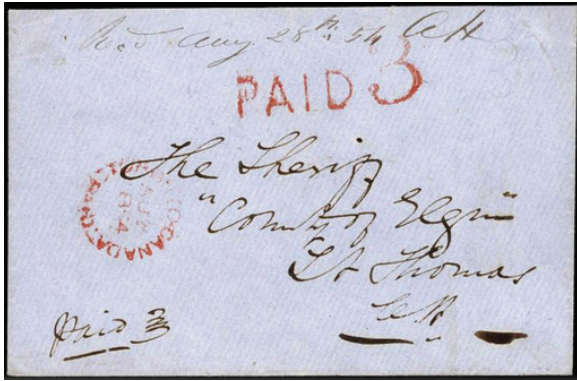 Rec'd Aug 28th 54 AH
PAID 3
The Sheriff
"County of Elgin"
St Thomas
CW.
CANADA
Paid 3